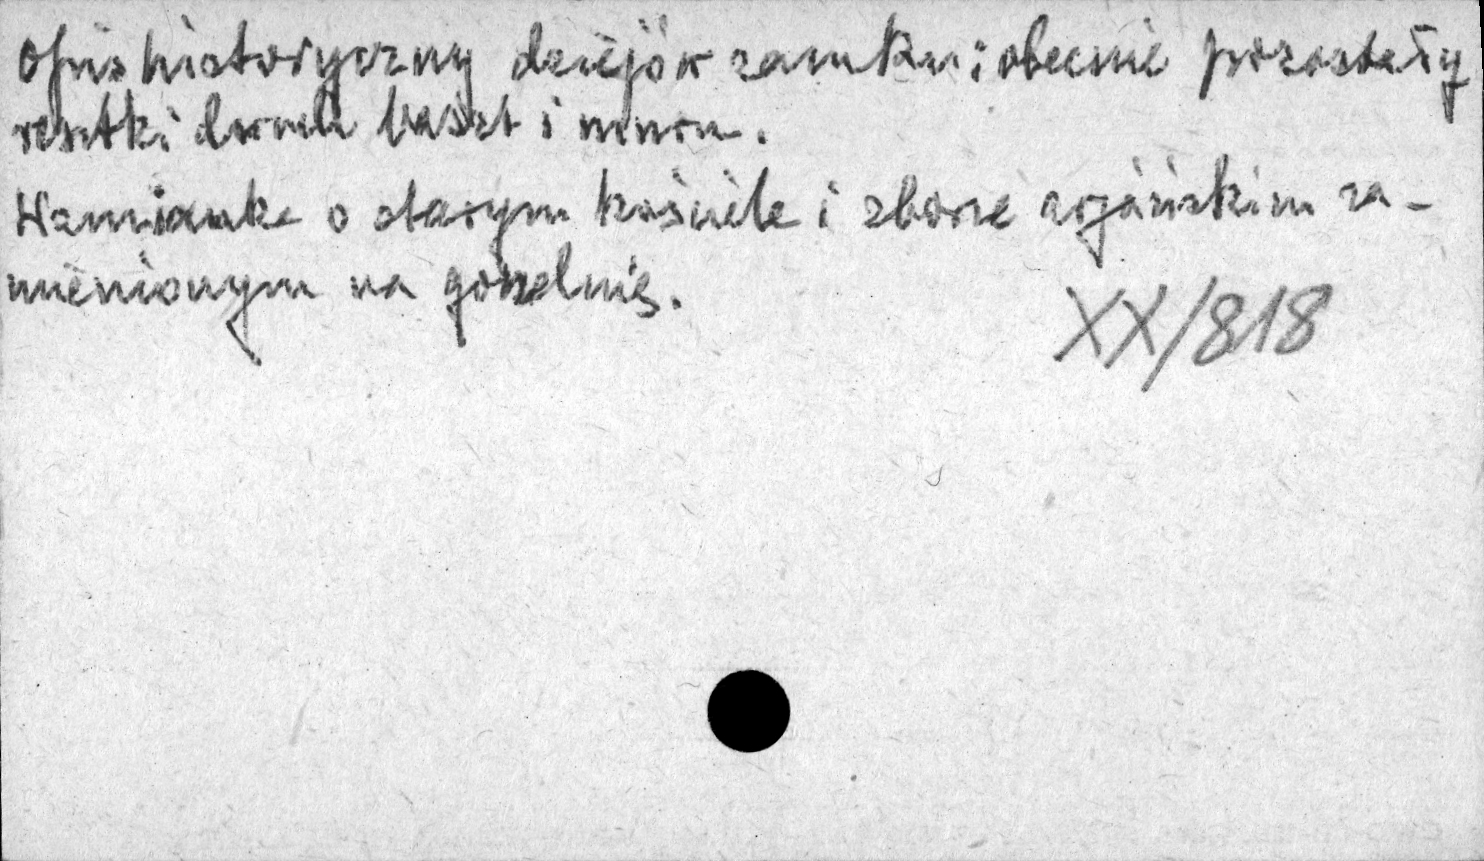 Opis historyczny dziejów zamku; obecnie pozostały
resztki dwuch baszt i muru.
Wzmianka o starym kościele i zborze arjańskim za-
mienionym na gorzelnię.
XX/818